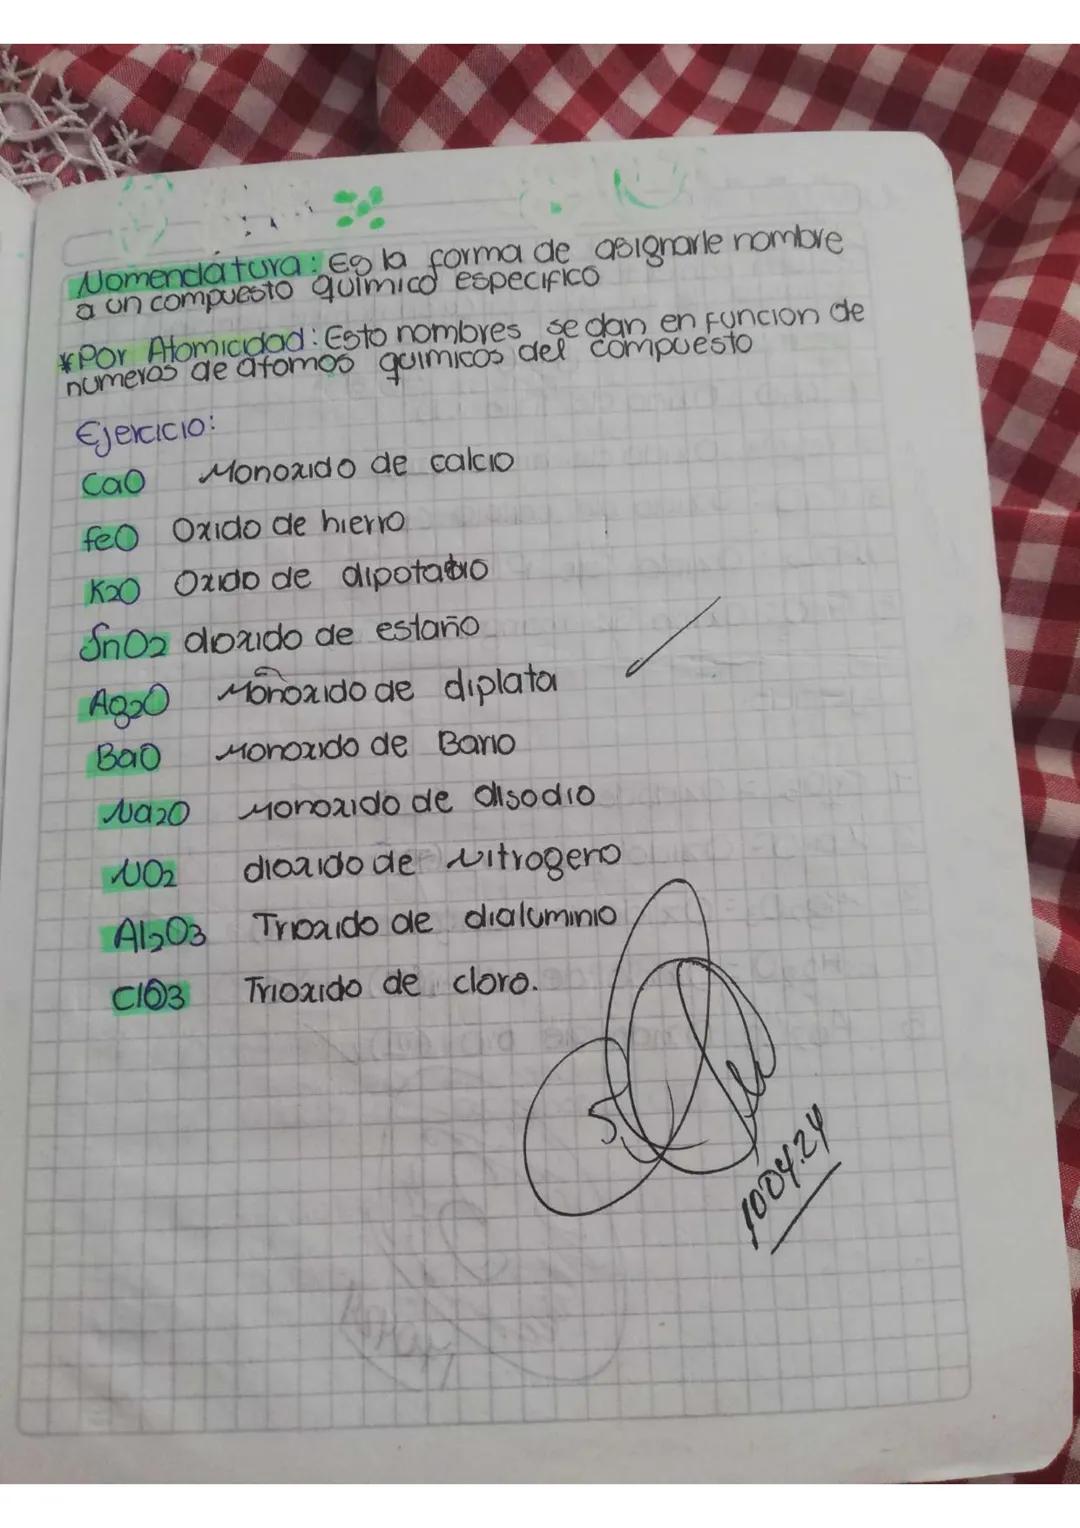 Nomenclatura: Es la forma de asignarle nombre
a un compuesto quimico especifico
*Por Atomicidad: Esto nombres se dan en funcion de
numeros de atomos quimicos del compuesto
Ejercicio:
CaO Monoxido de calcio
feO Oxido de hierro
K2O Oxido de dipotasio
SnO2 dioxido de estaño
Ag2O Monoxido de diplata
BaO Monoxido de Bario
Na2O Monoxido de disodio
NO2 dioxido de Nitrogeno
Al2O3 Trioxido de dialuminio
ClO3 Trioxido de cloro.
10.04.24